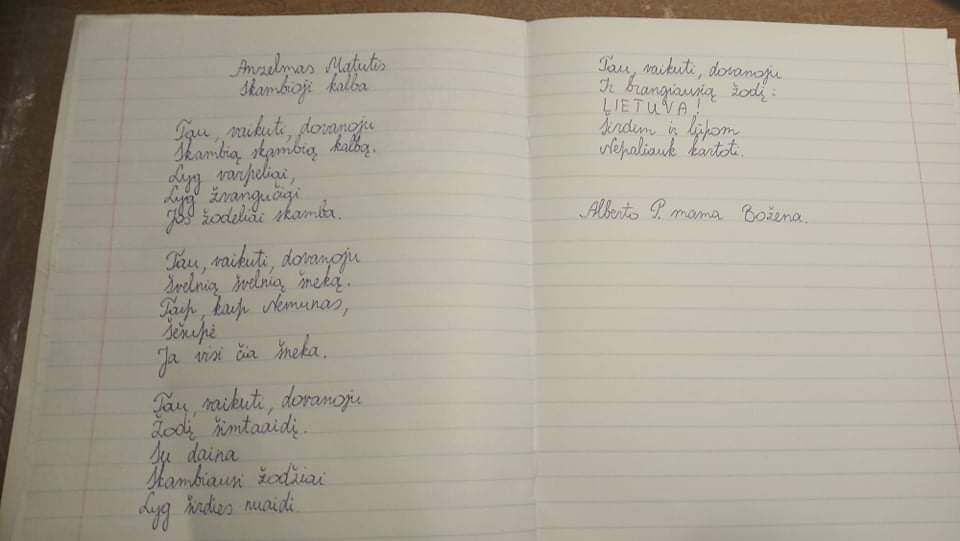 Anzelmas Matutis
Skambioji kalba
Tau, vaikuti, dovanoju
Skambią skambią kalbą.
Lyg varpeliai,
Lyg žvangučiai
Jos žodeliai skamba.
Tau, vaikuti, dovanoju
Švelnią švelnią šneką.
Taip, kaip Nemunas,
Šešupė
Ja visi čia šneka.
Tau, vaikuti, dovanoju
Žodį šimtaaidį.
Su daina
Skambiausi žodžiai
Lyg širdies nuaidi.
Tau, vaikuti, dovanoju
Ir brangiausią žodį:
LIETUVA!
Širdim ir lūpom
Nepaliauk kartoti.
Alberto P. mama Božena.